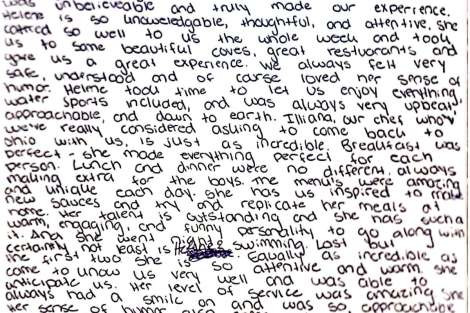 was unbelieveable and truly made our experience.
Helene is so unowledgable, thoughtful, and attentive, she
catered so well to us the whole week and took
us to some beautiful coves, great restuorants and
gave us a great experience. We always felt very
safe, understood and of carse loved her sense of
humor. Helme took time to let us enjoy everything,
water sports included, and was always very upbeat,
approachable, and down to earth. Illiana, our chef who
we've really considered asking to come back to
Ohio with us, is just as incredible. Breakfast was
perfect - she made everything perfect for each
person. Lunch and dinner were no different, always
making extra for the boys. The menu's were amazing
and unique each day. She has us inspired to make
new sauces and try and replicate her meals at
home. Her talent is outstanding and she has such a
warm, engaging, and funny personality to go along with
it. And she went swimming. Lost but
certainly not least is Equally as incredible as
the first two she is so attentive and warm. She
come to know us very well and was able to
anticipate us. Her level of service was amazing she
always had a smile on and was so approachable
her sense of humor